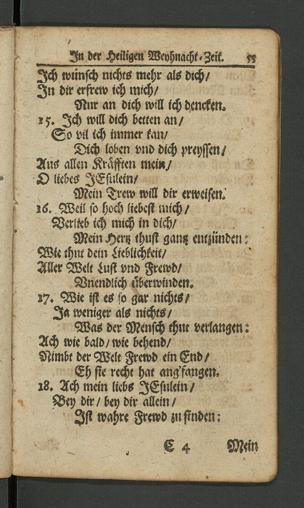 In der Heiligen Weyhnacht-Zeit. 55
Ich wünsch nichts mehr als dich/
In dir erfrew ich mich/
Nur an dich will ich dencken.
15. Ich will dich betten an/
So vil ich immer kan/
Dich loben vnd dich preyssen/
Aus allen Kräfften mein/
O liebes JEsulein/
Mein Trew will dir erweisen.
16. Weil so hoch liebest mich/
Verlieb ich mich in dich/
Mein Hertz thust gantz entzünden:
Wie thut dein Lieblichkeit/
Aller Welt Lust vnd Frewd/
Vnendlich überwinden.
17. Wie ist es so gar nichts/
Ja weniger als nichts/
Was der Mensch thut verlangen:
Ach wie bald/ wie behend/
Nimbt der Welt Frewd ein End/
Eh sie recht hat ang'fangen.
18. Ach mein liebs JEsulein/
Bey dir/ bey dir allein/
Ist wahre Frewd zu finden:
C 4 Mein